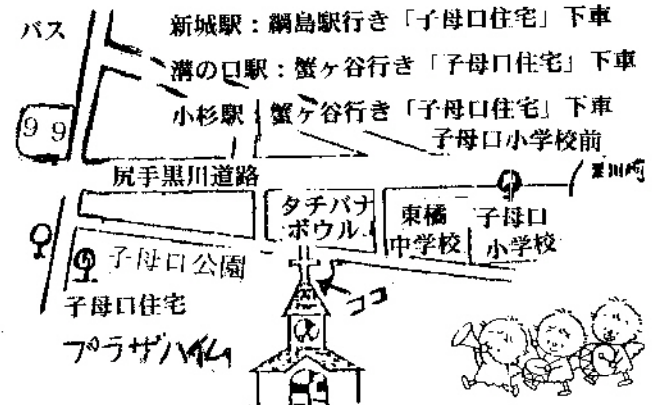 バス
新城駅：綱島駅行き「子母口住宅」下車
溝の口駅：蟹ヶ谷行き「子母口住宅」下車
小杉駅：蟹ヶ谷行き「子母口住宅」下車
99
子母口小学校前
尻手黒川道路
タチバナ
ボウル
東橘
中学校
子母口
小学校
子母口公園
子母口住宅
ココ
プラザハイム